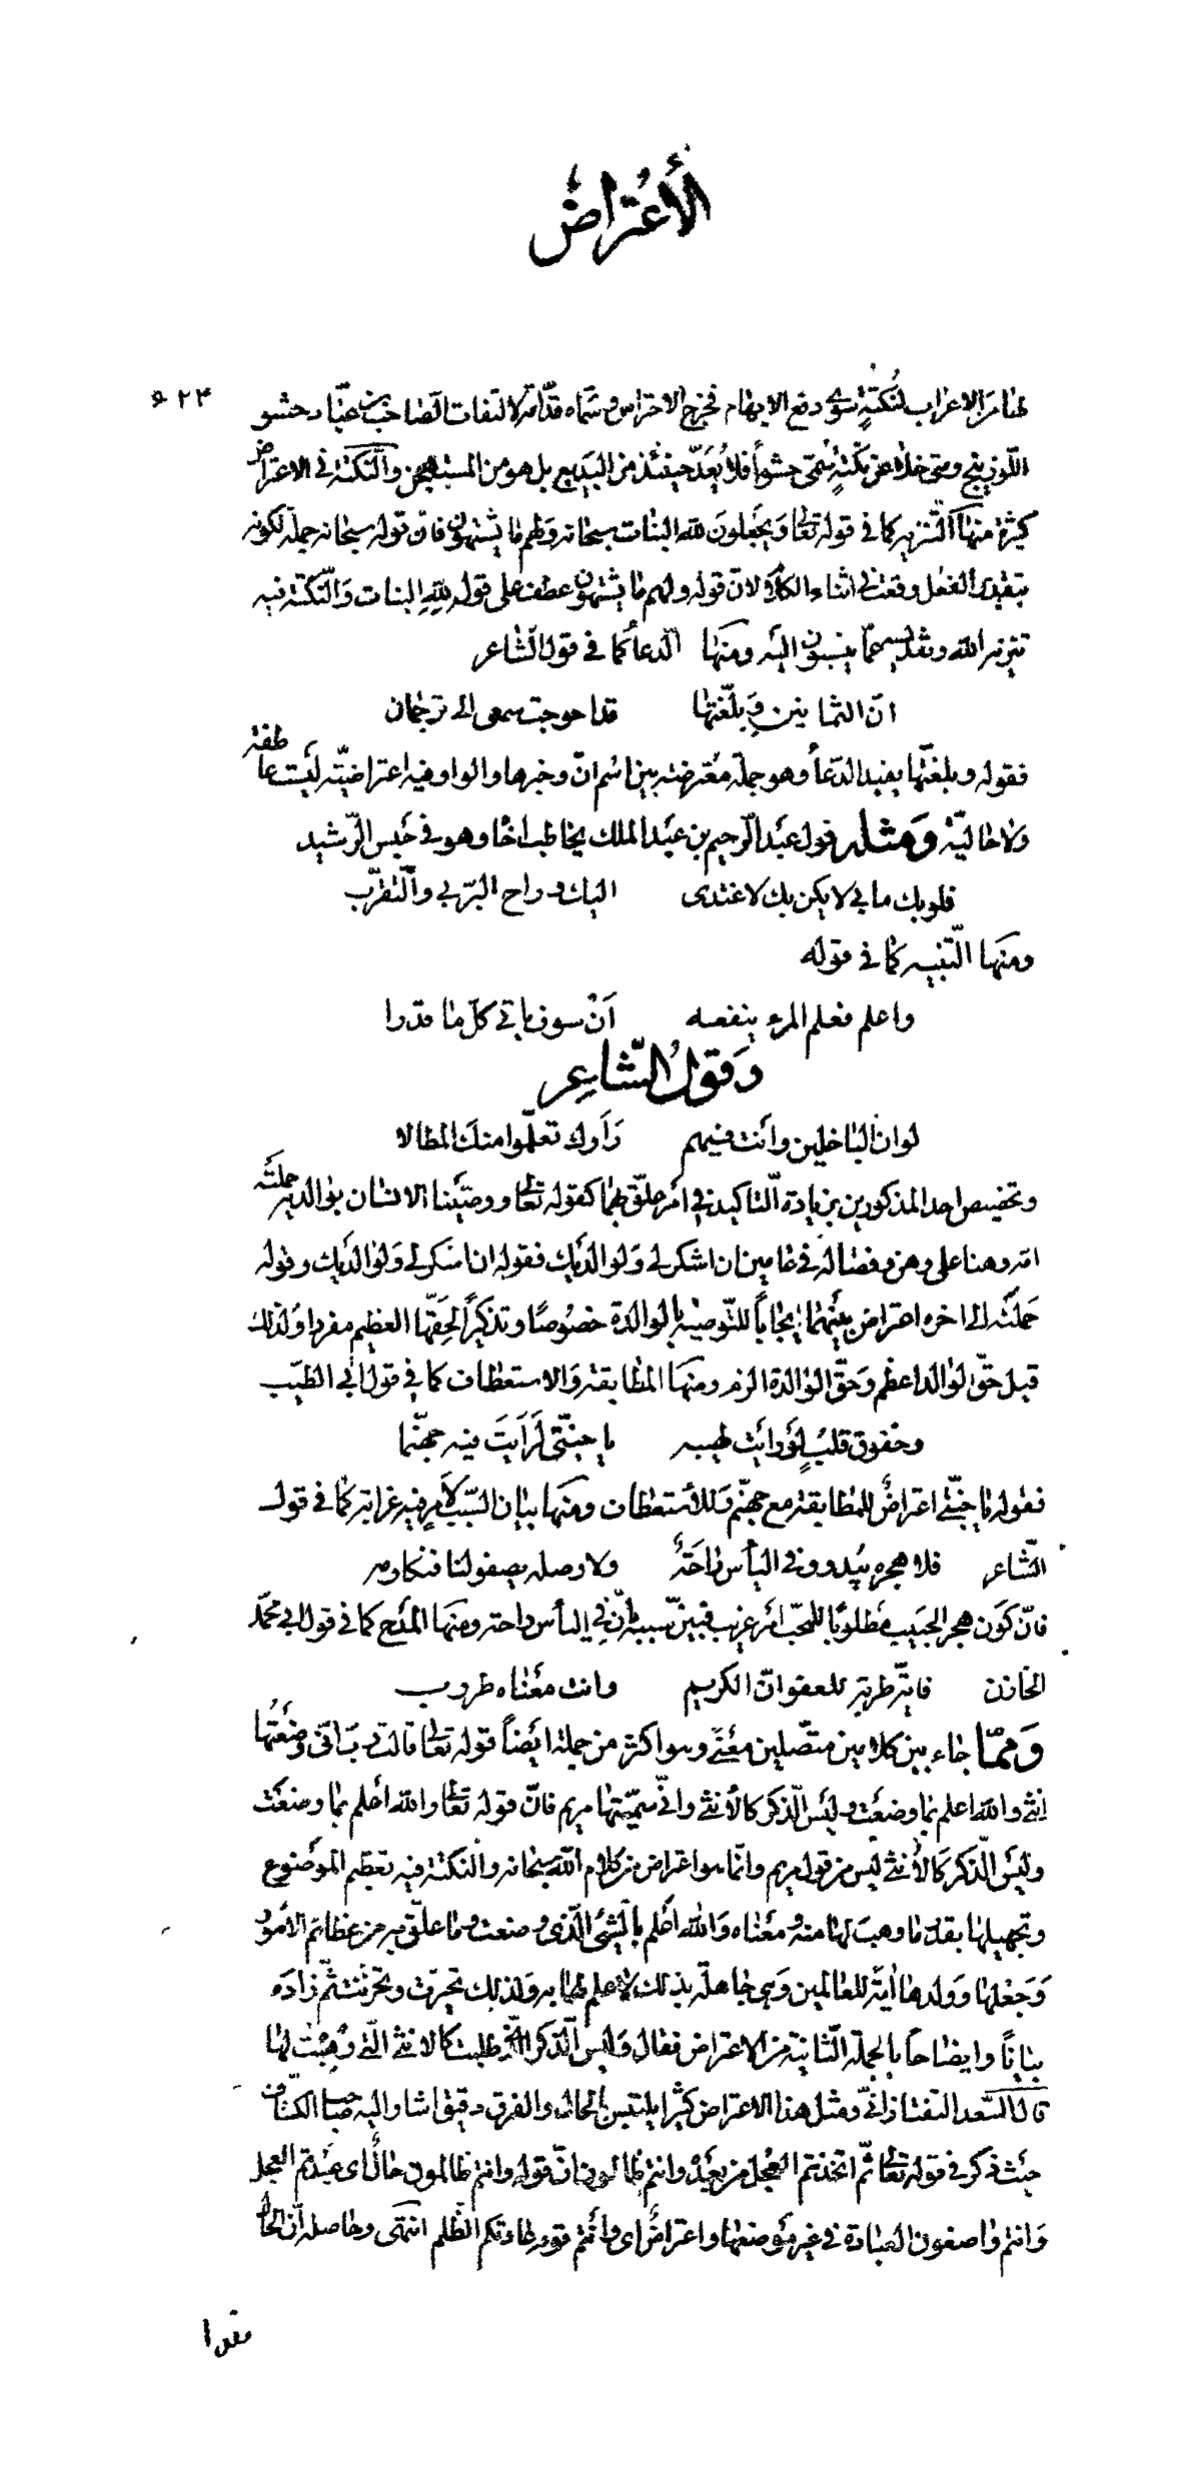 الأعتراض
٦٢٣
لها من الاعراب لنكتة سوى دفع الايهام فخرج الاحتراس وسماه قدامة الالتفات الصاحب بن عباد حشو
اللوزينج ومتى خلا عن نكتة سمى حشواً فلا يعد حينئذ من البديع بل هو من المستهجن والنكتة فى الاعتراض
كثيرة منها التنزيه كما فى قوله تعالى ويجعلون لله البنات سبحانه ولهم ما يشتهون فان قوله سبحانه جملة لكونه
بتقدير الفعل وقعت فى اثناء الكلام لان قوله ولهم ما يشتهون عطف على قوله لله البنات والنكتة فيه
تنزيه الله وتقديسه عما ينسبون اليه ومنها الدعاء كما فى قول الشاعر
ان الثمانين وبلغتها قد احوجت سمعى الى ترجمان
فقوله وبلغتها يفيد الدعاء وهو جملة معترضة بين اسم ان وخبرها والواو فيه اعتراضية ليست عاطفة
ولا حالية ومثله قول عبد الرحيم بن عبد الملك يخاطب اخا وهو فى حبس الرشيد
فلو بك ما بى لا يكن بك لاغتدى اليك وراح البر بى والتقرب
ومنها التنبيه كما فى قوله
واعلم فعلم المرء ينفعه أن سوف ياتى كل ما قدرا
وقول الشاعر
لو ان الباخلين وأنت فيهم رأوك تعلموا منك المطالا
وتخصيص احد المذكورين بزيادة التاكيد فى امر علق بهما كقوله تعالى ووصينا الانسان بوالديه حملته
امه وهنا على وهن وفصاله فى عامين ان اشكر لى ولوالديك فقوله ان اشكر لى ولوالديك وقوله
حملته الى اخره اعتراض بينهما ايجاباً للتوصية بالوالدة خصوصاً وتذكيراً لحقها العظيم مفردا ولذلك
قيل حق الوالد اعظم وحق الوالدة الزم ومنها المطابقة والاستعطاف كما فى قول ابى الطيب
وخفوق قلب لو رأيت لهيبه يا جنتى لرأيت فيه جهنما
فقوله يا جنتى اعتراض للمطابقة مع جهنم وللاستعطاف ومنها بيان السبب لامر فيه غرابة كما فى قول
الشاعر فلا هجره يبدو وفى اليأس راحة ولا وصله يصفو لنا فنكارمه
فان كون هجر الحبيب مطلوباً للمحب امر غريب فبين سببه بان فى اليأس راحة ومنها المدح كما فى قول ابى محمد
الخازن فاية طربة للعفو ان الكريم وانت معناه طروب
ومما جاء بين كلامين متصلين معنى وهو اكثر من جملة ايضاً قوله تعالى قالت رب انى وضعتها
انثى والله اعلم بما وضعت وليس الذكر كالأنثى وانى سميتها مريم فان قوله تعالى والله اعلم بما وضعت
وليس الذكر كالأنثى ليس من قول مريم وانما هو اعتراض من كلام الله سبحانه والنكتة فيه تعظيم الموضوع
وتجهيلها بقدر ما وهب لها منه ومعناه والله اعلم بالشئ الذى وضعت وما علق به من عظائم الأمور
وجعلها وولدها اية للعالمين وهى جاهلة بذلك لا علم لها به ولذلك تحيرت وتحزنت ثم زاده
بياناً وايضاحاً بالجملة الثانية من الاعتراض فقال وليس الذكر الذى طلبت كالانثى التى وهبت لها
قال السعد التفتازانى ومثل هذا الاعتراض كثيرا يلتبس بالحال والفرق دقيق اشار اليه صاحب الكشاف
حيث ذكر فى قوله تعالى ثم اتخذتم العجل من بعده وانتم ظالمون ان قوله وانتم ظالمون حال اى عبدتم العجل
وانتم واضعون العبادة فى غير موضعها واعتراض اى وانتم قوم عادتكم الظلم انتهى وحاصله ان الحال